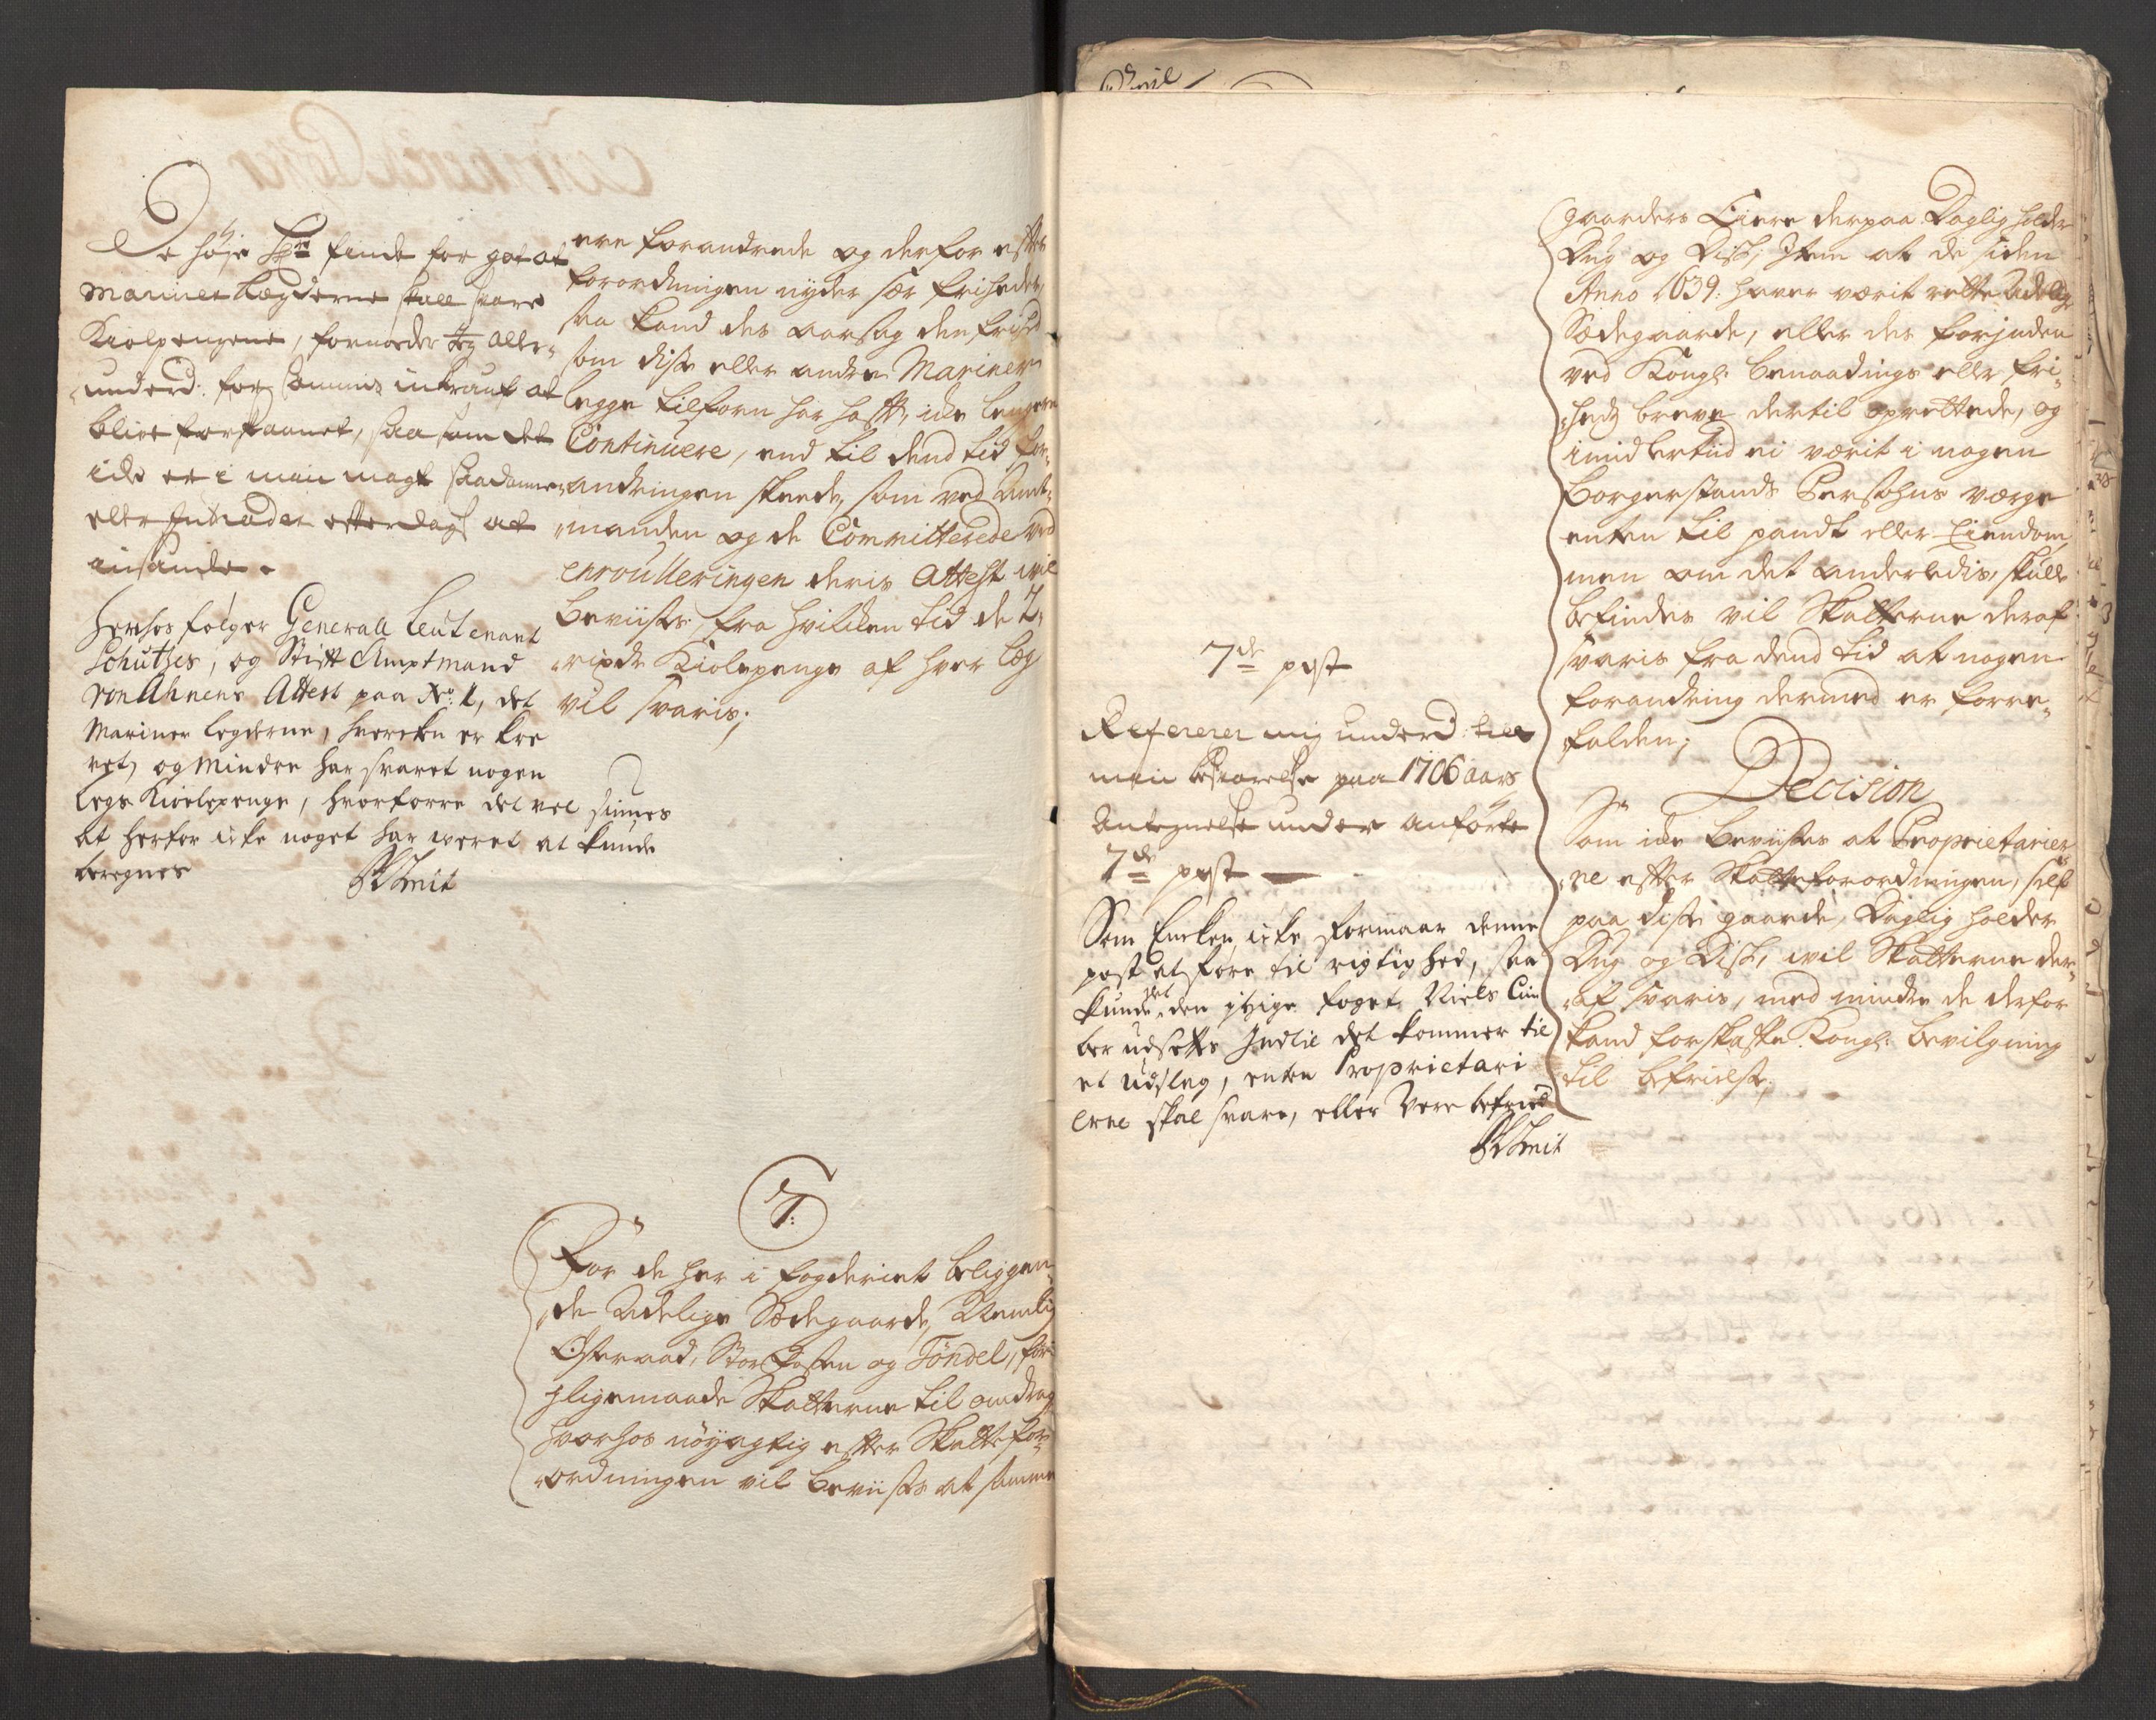 De høje Hrr finde for got at
Mariner Lægderne skall svare
Kiolpengene, formoder Jeg aller¬
underd: for samme indkauf at
blive forskaanet, saa som det
icke er i min magt saadanne
eller Intrader efterdags at
indsamle.
Herhos følger Generall Leutenant
Schulthes, og Stift Amptmand
von Ahnens Attest paa No: 1, det
Mariner legderne, hvercken er kre
vet, og mindre har svaret nogen
legs Kiolepenge, hvorforre det vel siunes
at herfor icke noget har weret at kunde
beregnes
SWSmit
ere forandrede og derfor efter
forordningen nyder sær friheder,
saa kand des aarsag den frihed
som disse eller andre Mariner
legge tilforn har hafft, icke lengere
Continuere, end til dend tid for¬
andringen skeede, som ved Amt¬
manden og de Committerede ved
enroulleringen deris Attest vil
beviises, fra hvilcken tid de 2
rixdr Kiolepenge af hver Læg
vil svaris;
7:
For de her i fogderiet beliggen¬
de Adelige Sædegaarde, Nemlig
Østeraad, Storfosen og Tøndel, føris
ligemaade Skatterne til omdrag
hvorhos nøyagtig efter Skattefor¬
ordningen vil beviises at samme
7de post
Refererer mig underd: till
min besvarelse paa 1706 aars
Antegnelse under anførte
7de post
Som Encken icke formaar denne
post at føre til rigtighed, saa
kunde det den itzige foget Niels Cim
ber udsettes Indtil det kommer til
et udslag, enten Proprietari
erne skal svare, eller Vere befried
SWSmit
gaarders Eiere derpaa Daglig holder
Dug og Disk, Item at de siden
Anno 1639: haver værit rette Adelige
Sædegaarde, eller des forjnden
ved Kongl: benaadings eller fri¬
heds breve dertil oprettede, og
imidlertiid ei værit i nogen
borgerstands Persohns værge
enten til pandt eller Eiendom
men om det anderledis, skulle
befindes vil Skatterne deraf
svaris fra dend tid at nogen
forandring dermed er forre¬
falden;
Decision
Som icke beviises at Proprietarier¬
ne efter Skatteforordningen, self
paa disse gaarde, Daglig holder
Dug og Disk, vil Skatterne der¬
af svaris, med mindre de derfor
kand forskaffe Kongl: bevilgning
til befrielse;